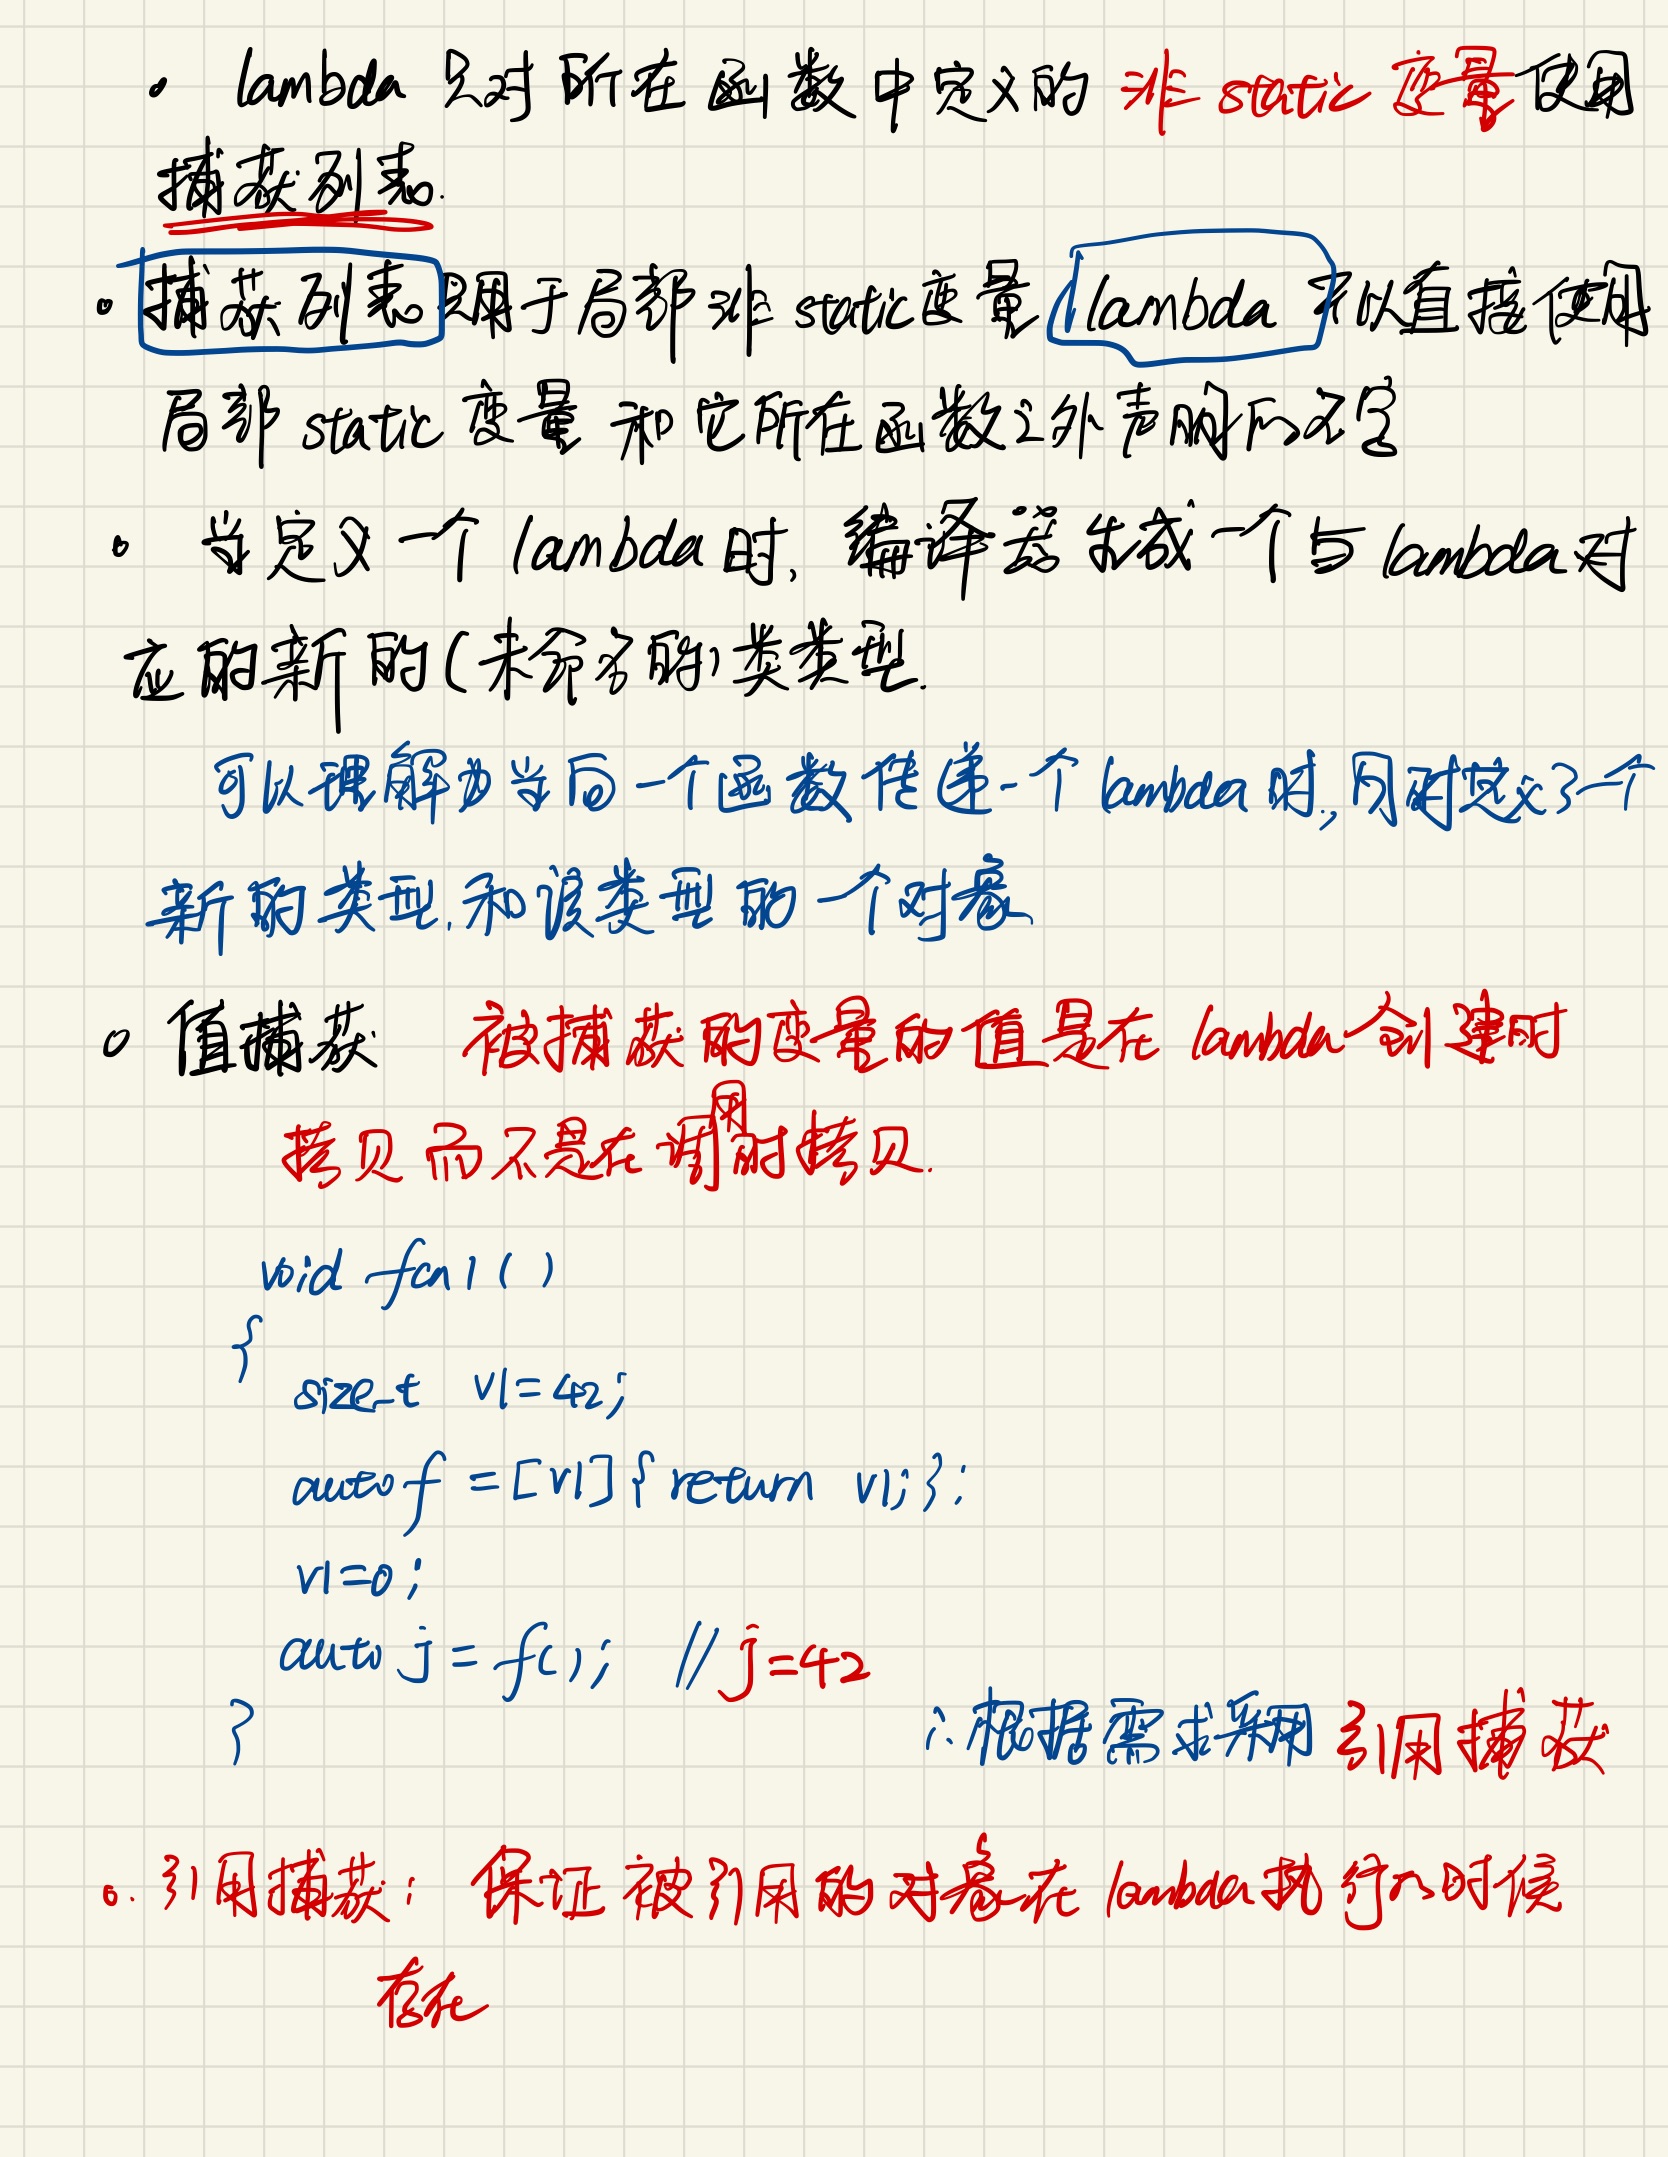 lambda 只对所在函数中定义的 非 static 变量使用
捕获列表.
捕获列表只用于局部非 static 变量 lambda 可以直接使用
局部 static 变量 和它所在函数之外声明的名字
当定义一个 lambda 时, 编译器生成一个与 lambda 对
应的新的(未命名的)类类型.
可以理解为当向一个函数传递一个 lambda 时, 同时定义了一个
新的类型,和该类型的一个对象
值捕获 被捕获的变量的值是在 lambda 创建时
拷贝 而不是在调用时拷贝.
void fcn1()
{
size_t v1=42;
auto f = [v1]{return v1;};
v1=0;
auto j = f(); // j=42
}
∴根据需求采用 引用捕获
引用捕获: 保证被引用的对象在 lambda 执行的时候
存在